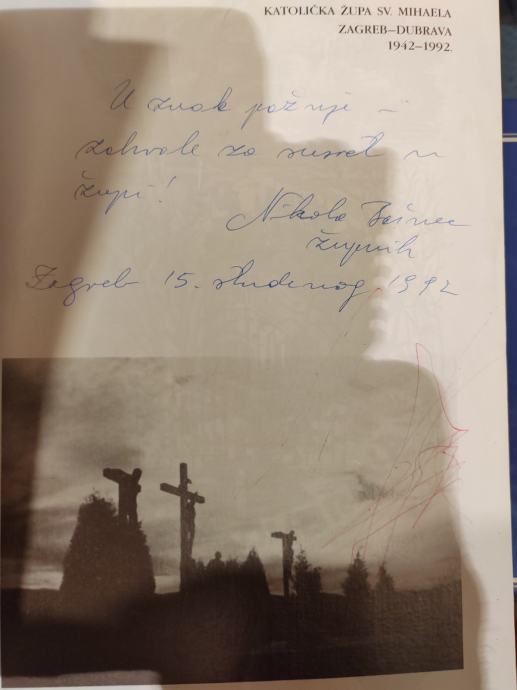 KATOLIČKA ŽUPA SV. MIHAELA
ZAGREB–DUBRAVA
1942–1992.
U znak pažnje –
zahvale za susret u
župi!
Nikola
župnik
Zagreb 15. studenog 1992